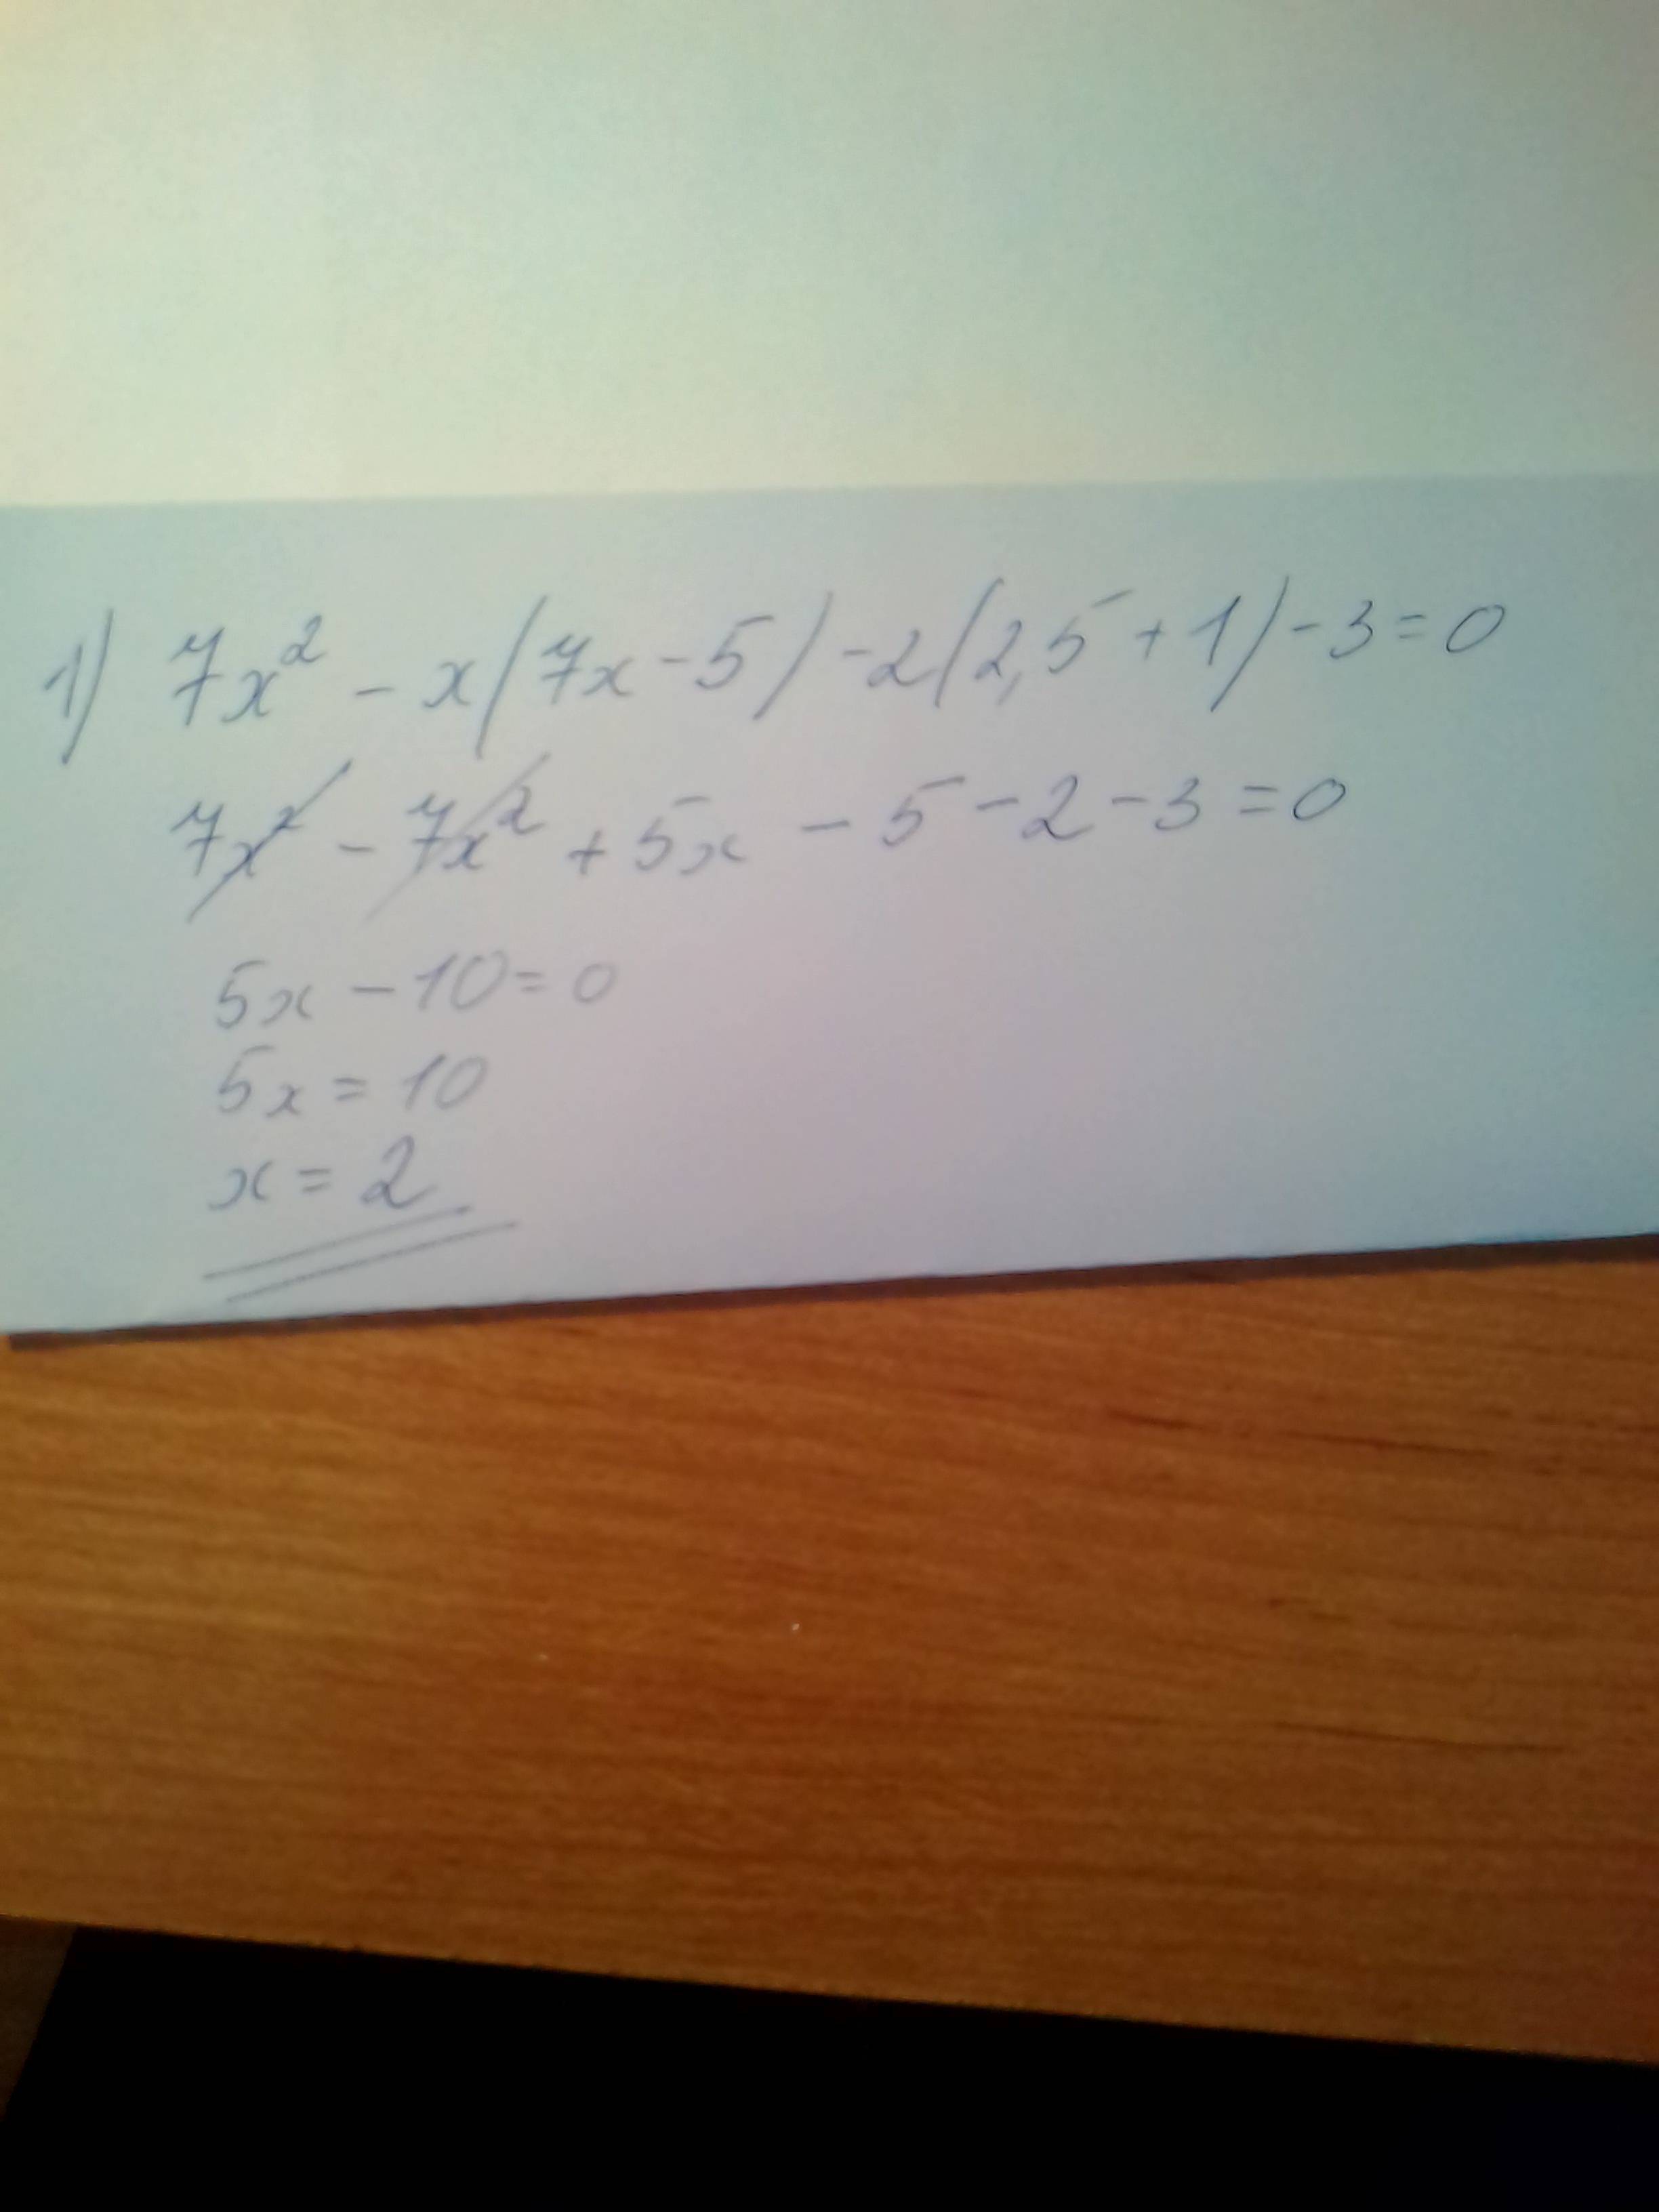 1) 7x² - x(7x - 5) - 2(2,5 + 1) - 3 = 0
7x² - 7x² + 5x - 5 - 2 - 3 = 0
5x - 10 = 0
5x = 10
x = 2